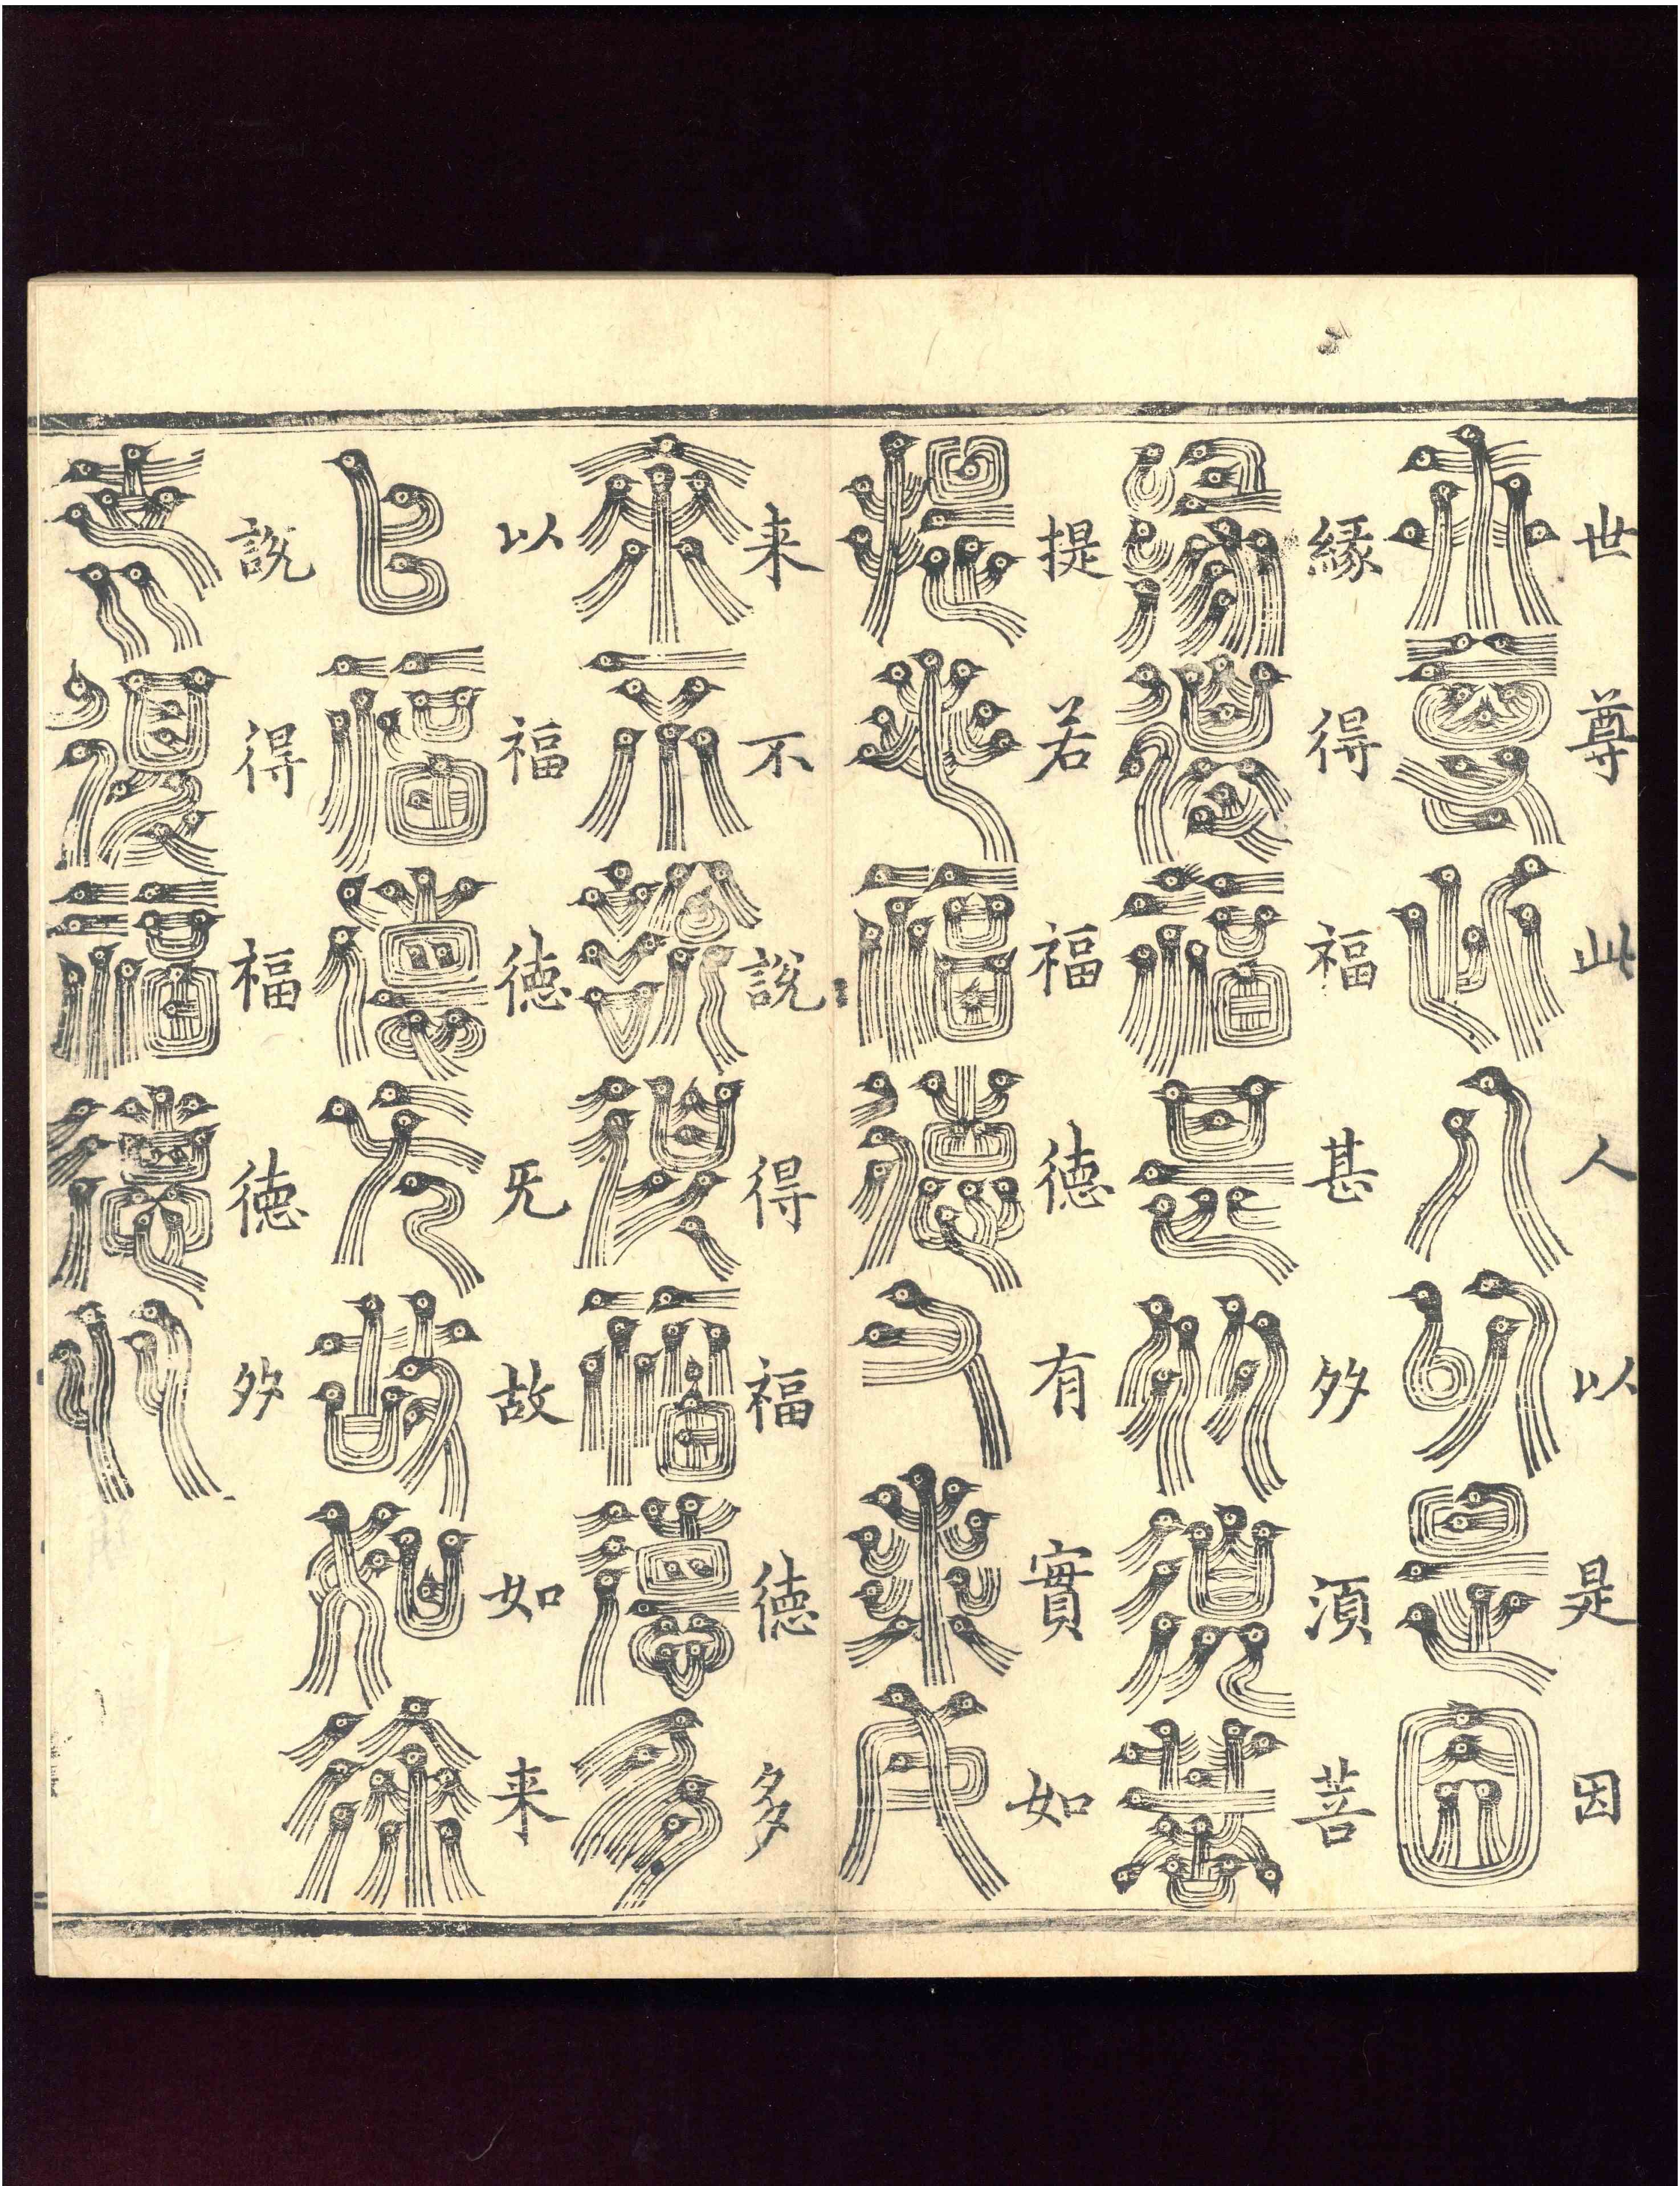 世尊此人以是因
緣得福甚多須菩
提若福德有實如
来不說得福德多
以福德旡故如来
說得福德多